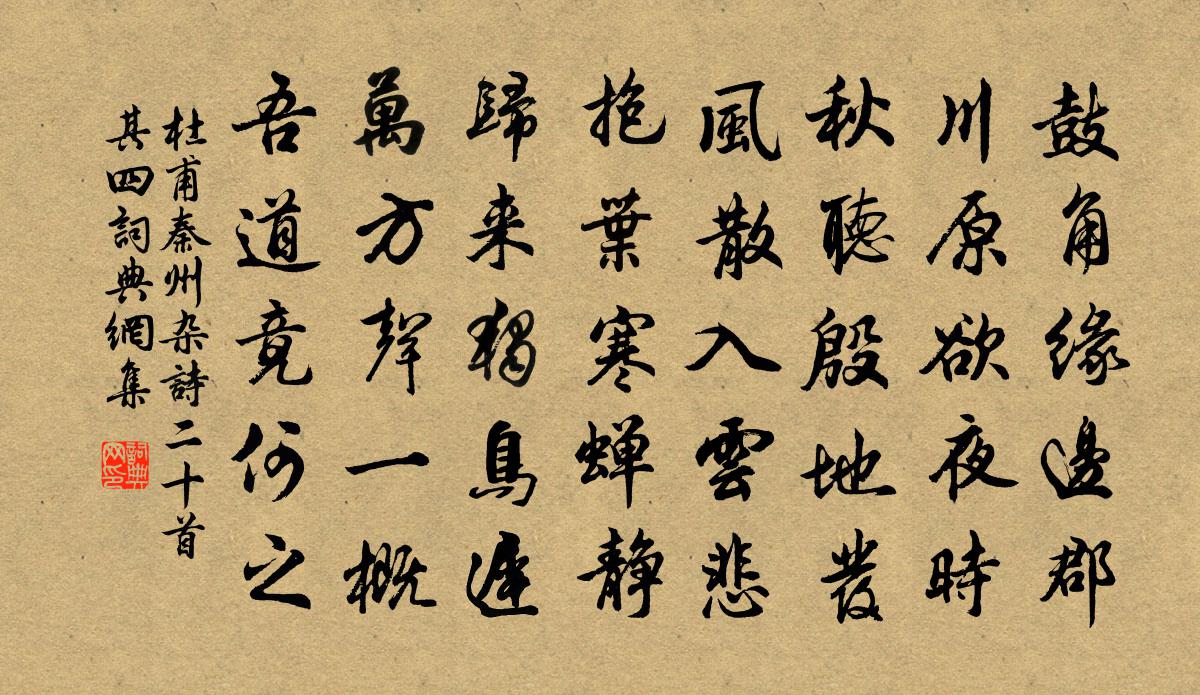 鼓角缘邊郡
川原欲夜時
秋聽殷地發
風散入雲悲
抱葉寒蟬静
歸来獨鳥遲
萬方聲一概
吾道竟何之
杜甫秦州杂詩二十首
其四詞典網集
詞典
网印